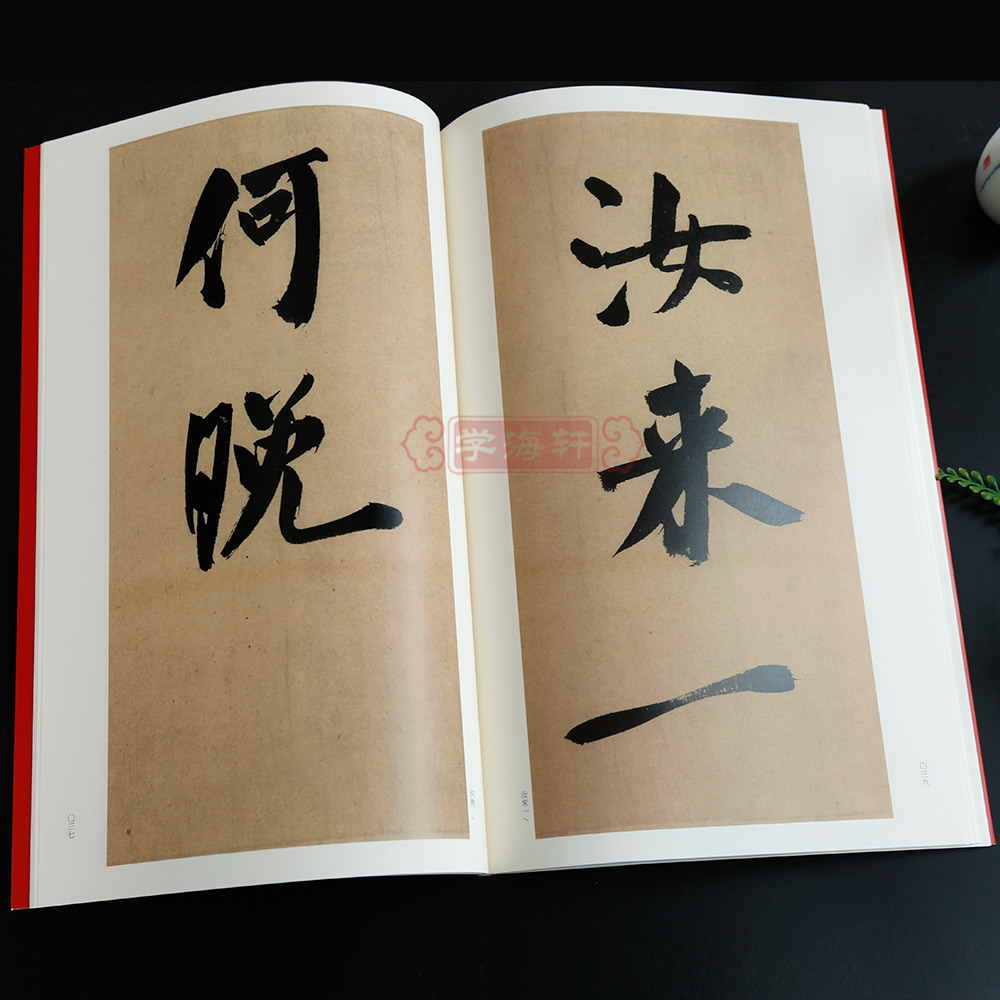 汝来一
何晚
学海轩
〇三六
〇三七